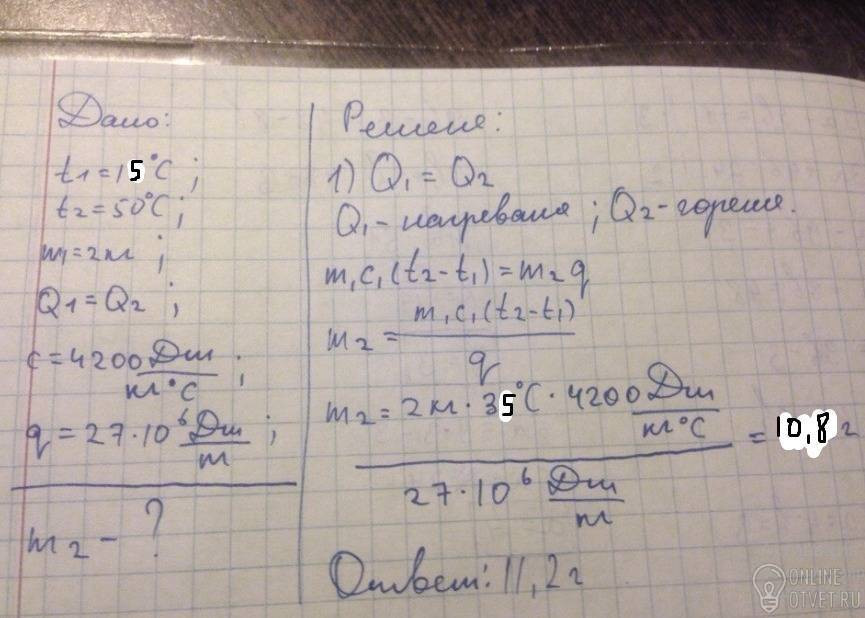 Дано:
t1 = 15°C ;
t2 = 50°C ;
m1 = 2кг ;
Q1 = Q2 ;
c = 4200 Дж/кг°C ;
q = 27·10⁶ Дж/кг ;
m2 - ?
Решение:
1) Q1 = Q2
Q1 - нагревания ; Q2 - горения.
m1c1(t2-t1) = m2q
m2 = m1c1(t2-t1)/q
m2 = 2кг · 35°C · 4200 Дж/кг°C / 27·10⁶ Дж/кг = 10,8 г
Ответ: 11,2 г
ONLINE
OTVET.RU